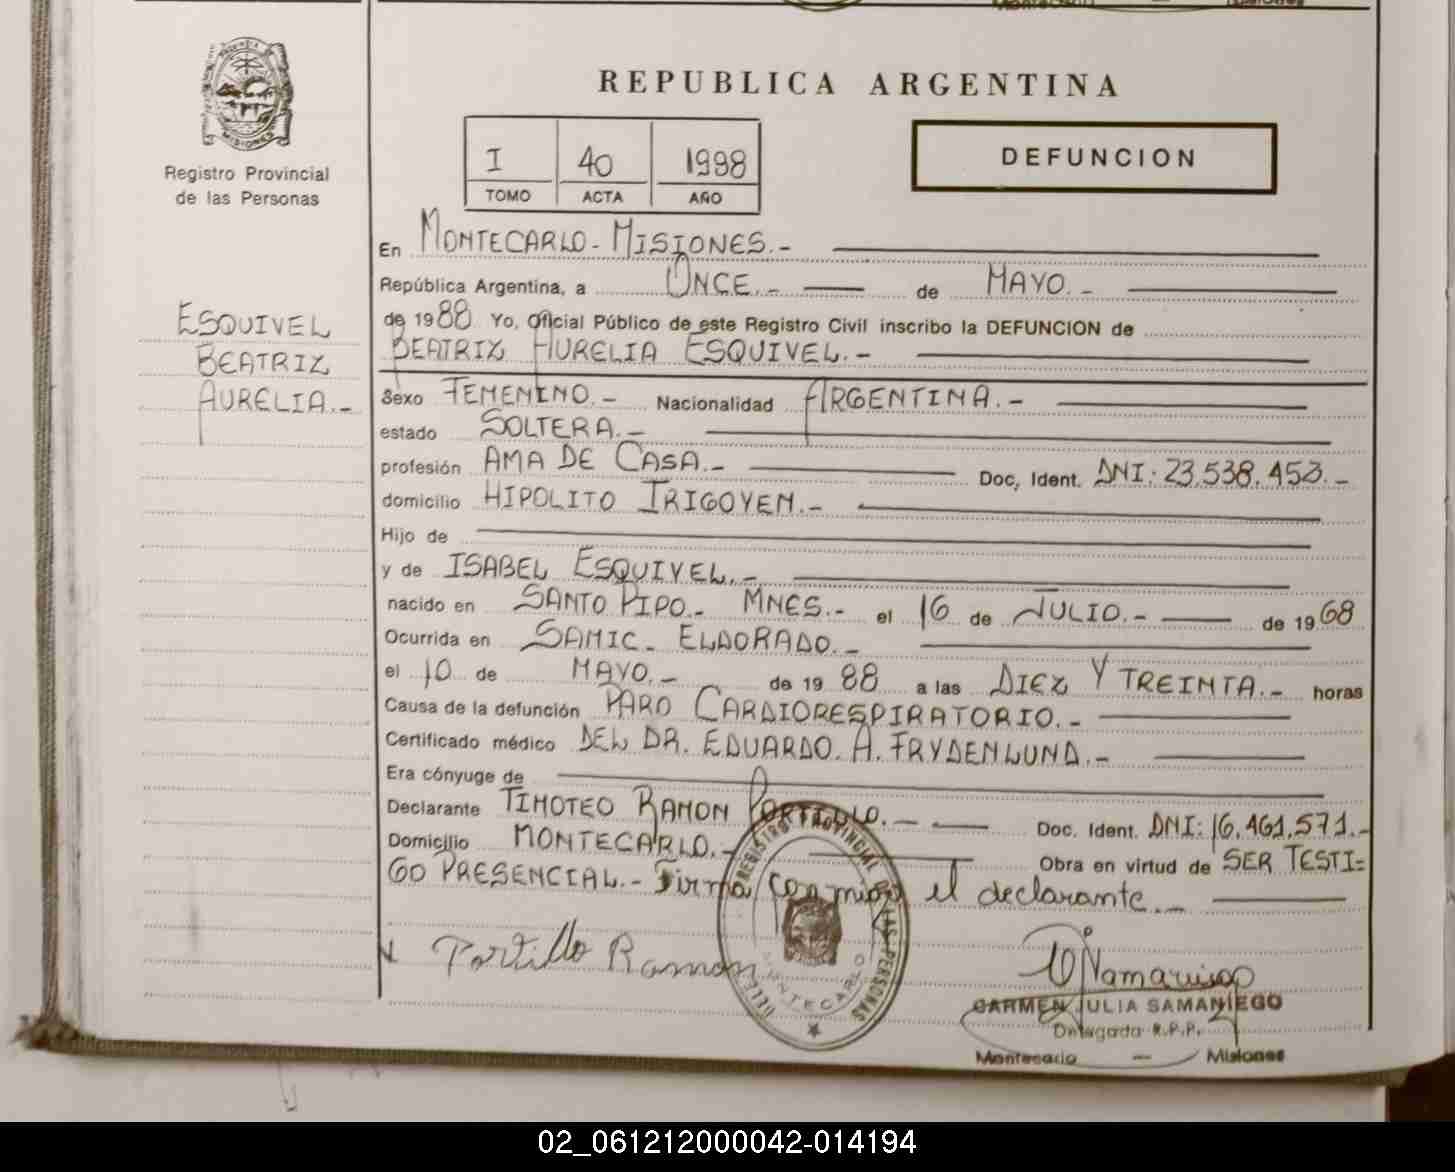 PROVINCIA DE
MISIONES
Registro Provincial
de las Personas
ESQUIVEL
BEATRIZ
AURELIA.-
REPUBLICA ARGENTINA
I 40 1998
TOMO ACTA AÑO
DEFUNCION
En MONTECARLO - MISIONES.-
República Argentina, a ONCE.- de MAYO.-
de 1988 Yo, Oficial Público de este Registro Civil inscribo la DEFUNCION de
BEATRIZ AURELIA ESQUIVEL.-
Sexo FEMENINO.- Nacionalidad ARGENTINA.-
estado SOLTERA.-
profesión AMA DE CASA.- Doc, Ident. DNI: 23.538.453.-
domicilio HIPOLITO IRIGOYEN.-
Hijo de
y de ISABEL ESQUIVEL.-
nacido en SANTO PIPO.- MNES.- el 16 de JULIO.- de 1968
Ocurrida en SAMIC - ELDORADO.-
el 10 de MAYO.- de 19 88 a las DIEZ Y TREINTA.- horas
Causa de la defunción PARO CARDIORESPIRATORIO.-
Certificado médico DEL DR. EDUARDO. A. FRYDENLUND.-
Era cónyuge de
Declarante TIMOTEO RAMON PORTILLO.- Doc. Ident. DNI: 16.461.571.-
Domicilio MONTECARLO.- Obra en virtud de SER TESTI=
GO PRESENCIAL.- Firma conmigo el declarante.-
Portillo Ramon
REGISTRO PROVINCIAL DE LAS PERSONAS
MONTECARLO
CARMEN JULIA SAMANIEGO
Delegada R.P.P.
Montecarlo - Misiones
02_061212000042-014194